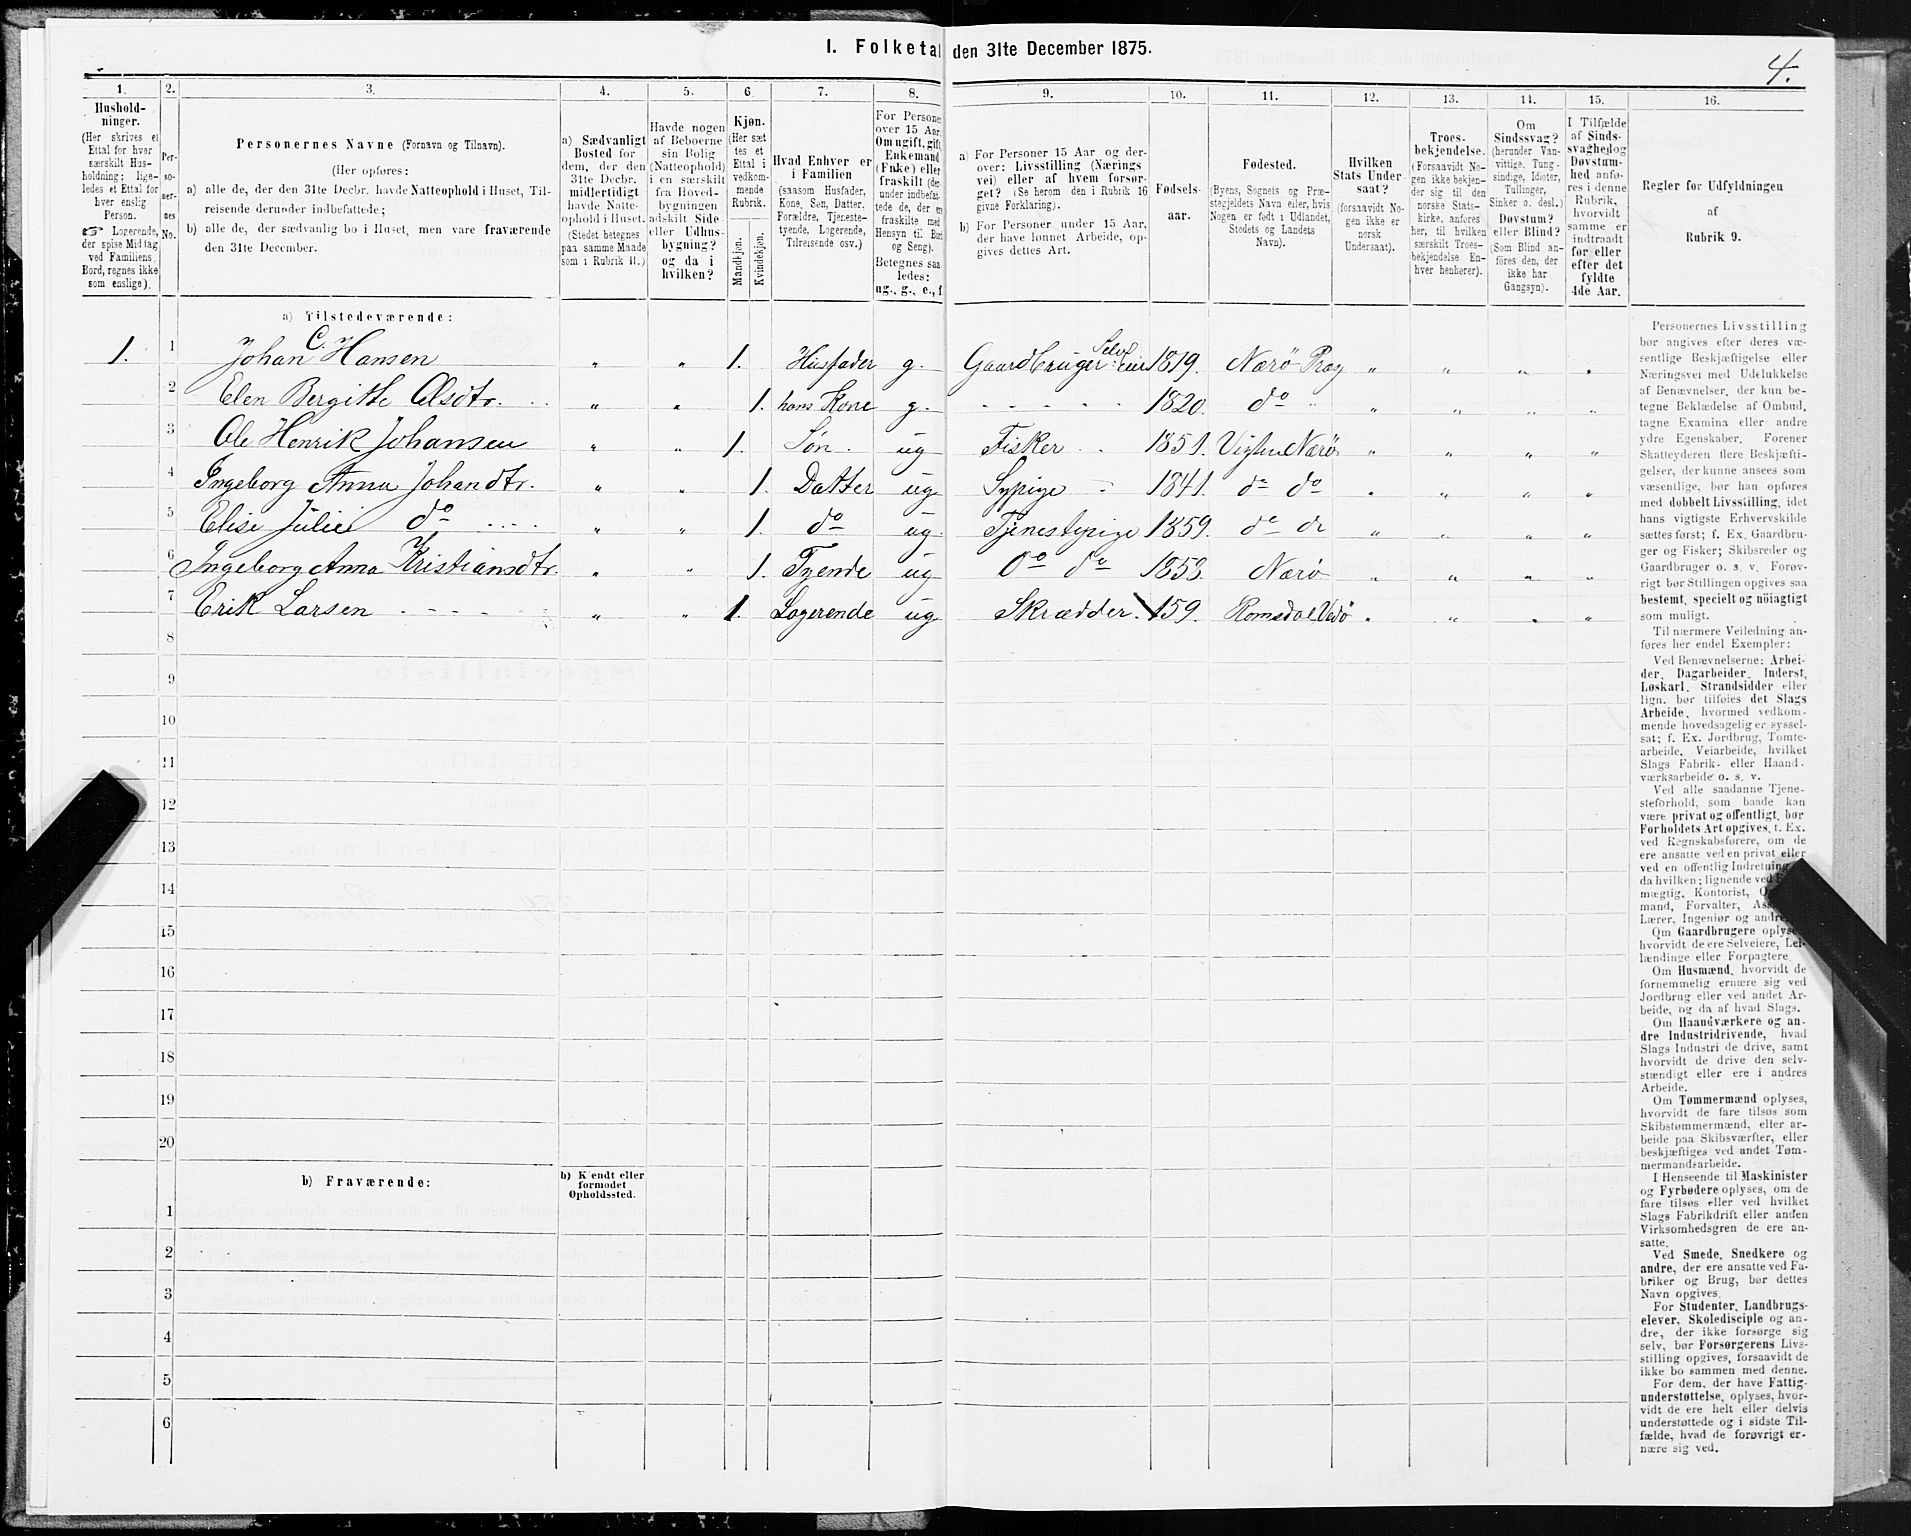 I. Folketal den 31te December 1875.
4.
1. 2. 3. 4. 5. 6. 7. 8. 9. 10. 11. 12. 13. 14. 15. 16.
Hushold-
ninger.
(Her skrives et
Ettal for hver
særskilt Hus-
holdning; lige-
ledes et Ettal for
hver enslig
Person.
☞ Logerende,
der spise Middag
ved Familiens
Bord, regnes ikke
som enslige).
Per-
so-
ner-
nes
No.
Personernes Navne (Fornavn og Tilnavn).
(Her opføres:
a) alle de, der den 31te Decbr. havde Natteophold i Huset, Til-
reisende derunder indbefattede;
b) alle de, der sædvanlig bo i Huset, men vare fraværende
den 31te December.
a) Sædvanligt
Bosted for
dem, der den
31te Decbr.
midlertidigt
havde Natte-
ophold i Huset.
(Stedet betegnes
paa samme Maade
som i Rubrik 11.)
Havde nogen
af Beboerne
sin Bolig
(Natteophold)
i en særskilt
fra Hoved-
bygningen
adskilt Side-
eller Udhus-
bygning?
og da i
hvilken?
Kjøn.
(Her sæt
tes et
Ettal i
vedkom-
mende
Rubrik.
Mandkjøn.
Kvindekjøn.
Hvad Enhver er
i Familien
(saasom Husfader,
Kone, Søn, Datter,
Forældre, Tjeneste-
tyende, Logerende,
Tilreisende osv.)
For Persone
over 15 Aar:
Om ugift, gift
Enkemand
(Enke) eller
fraskilt (der-
under indbefat-
tede de, der e
fraskilte med
Hensyn til Bor
og Seng).
Betegnes saa
ledes:
ug., g., e., f
a) For Personer 15 Aar og der-
over: Livsstilling (Nærings
vei) eller af hvem forsør-
get? (Se herom den i Rubrik 16
givne Forklaring).
b) For Personer under 15 Aar,
der have lønnet Arbeide, op-
gives dettes Art.
Fødsels-
aar.
Fødested.
(Byens, Sognets og Præ-
stegjeldets Navn eller, hvis
Nogen er født i Udlandet,
Stedets og Landets
Navn).
Hvilken
Stats Under-
saat?
(forsaavidt No-
gen ikke er
norsk
Undersaat).
Troes-
bekjendelse.
(Forsaavidt No-
gen ikke bekjen-
der sig til den
norske Stats-
kirke, anføres
her, til hvilken
særskilt Troes-
bekjendelse En-
hver henhører).
Om
Sindssvag?
(herunder Van-
vittige, Tung-
sindige, Idioter,
Tullinger,
Sinker o. desl.)
Døvstum?
eller Blind?
(Som Blind an-
føres den, der
ikke har
Gangsyn).
I Tilfælde
af Sinds-
svaghed og
Døvstum-
hed anfø-
res i denne
Rubrik,
hvorvidt
samme er
indtraadt
før eller
efter det
fyldte
4de Aar.
Regler for Udfyldningen
af
Rubrik 9.
a) Tilstedeværende:
1. 1 Johan C. Hansen " " 1. Husfader g. Gaardbruger Selveier 1819. Nærö Præg " " " "
2 Elen Bergitte Olsdtr. " " 1. hans Kone g. - - - - - 1820. do " " " " "
3 Ole Henrik Johansen " " 1. Søn. ug Fisker 1851. Vigten Nærö " " " "
4 Ingeborg Anna Johandtr. " " 1. Datter ug Sypige - 1841. do do " " " "
5 Elise Julie do " " 1. do ug. Tjenestepige 1859. do do " " " "
6 Ingeborg Anna Kristiansdtr. " " 1. Tyende ug do do 1853. Nærö " " " "
7 Erik Larsen " " 1. Logerende ug Skrædder. 159. Romsdal, Vedö " " " "
8
9
10
11
12
13
14
15
16
17
18
19
20
b) Fraværende:
b) Kjendt eller
formodet
Opholdssted.
1
2
3
4
5
6
Personernes Livsstilling
bør angives efter deres væ-
sentlige Beskjæftigelse eller
Næringsvei med Udelukkelse
af Benævnelser, der kun be-
tegne Beklædelse af Ombud,
tagne Examina eller andre
ydre Egenskaber. Forener
Skatteyderen flere Beskjæfti-
gelser, der kunne ansees som
væsentlige, bør han opføres
med dobbelt Livsstilling, idet
hans vigtigste Erhvervskilde
sættes først; f. Ex. Gaardbru-
ger og Fisker; Skibsreder og
Gaardbruger o. s. v. Forøv-
rigt bør Stillingen opgives saa
bestemt, specielt og nøiagtigt
som muligt.
Til nærmere Veiledning an-
føres her endel Exempler:
Ved Benævnelserne: Arbei-
der, Dagarbeider, Inderst,
Løskarl, Strandsidder eller
lign. bør tilføies det Slags
Arbeide, hvormed vedkom-
mende hovedsagelig er syssel-
sat; f. Ex. Jordbrug, Tomte-
arbeide, Veiarbeide, hvilket
Slags Fabrik- eller Haand-
værksarbeide o. s. v.
Ved alle saadanne Tjene-
steforhold, som baade kan
være privat og offentligt, bør
Forholdets Art opgives, t. Ex.
ved Regnskabsførere, om de
ere ansatte ved en privat eller
ved en offentlig Indretning
da hvilken; lignende ved
mægtig, Kontorist,
mand, Forvalter,
Lærer, Ingeniør og andre.
Om Gaardbrugere oplyses,
hvorvidt de ere Selveiere, Lei-
lændinge eller Forpagtere.
Om Husmænd, hvorvidt de
fornemmelig ernære sig ved
Jordbrug eller ved andet Ar-
beide, og da af hvad Slags.
Om Haandværkere og an-
dre Industridrivende, hvad
Slags Industri de drive, samt
hvorvidt de drive den selv-
stændigt eller ere i andres
Arbeide.
Om Tømmermænd oplyses,
hvorvidt de fare tilsøs som
Skibstømmermænd, eller ar-
beide paa Skibsværfter, eller
beskjæftiges ved andet Tøm-
mermandsarbeide.
I Henseende til Maskinister
og Fyrbødere oplyses, om de
fare tilsøs eller ved hvilket
Slags Fabrikdrift eller anden
Virksomhedsgren de ere an-
satte.
Ved Smede, Snedkere og
andre, der ere ansatte ved Fa-
briker og Brug, bør dettes
Navn opgives.
For Studenter, Landbrugs-
elever, Skoledisciple og an-
dre, der ikke forsørge sig
selv, bør Forsørgerens Livs-
stilling opgives, forsaavidt de
ikke bo sammen med denne.
For dem, der have Fattig-
understøttelse, oplyses, hvor-
vidt de ere helt eller delvis
understøttede og i sidste Til-
fælde, hvad de forøvrigt er-
nære sig ved.